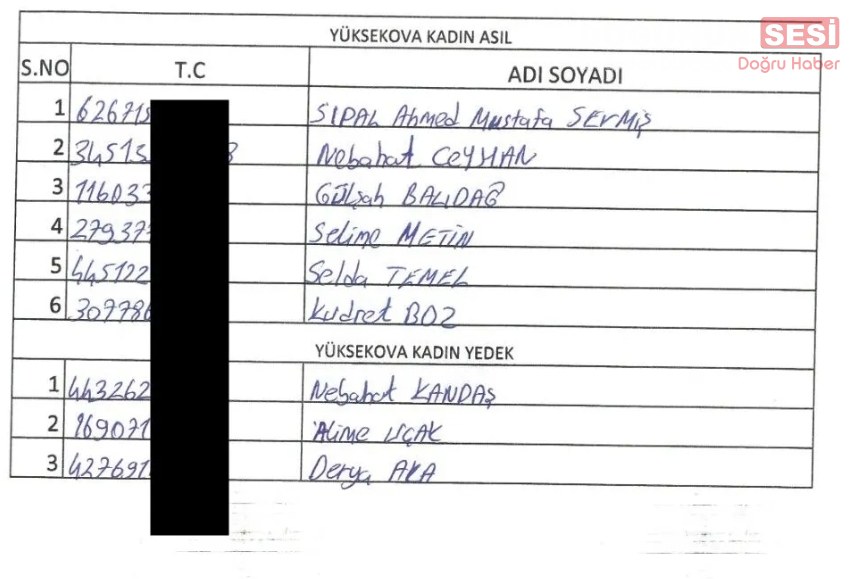 YÜKSEKOVA KADIN ASIL
SESİ
Doğru Haber
S.NO T.C ADI SOYADI
1 626715 SIPAL Ahmed Mustafa SEVMİŞ
2 34513 8 Nebahat CEYHAN
3 116033 Gülşah BALIDAĞ
4 27937 Selime METİN
5 445122 Selda TEMEL
6 307786 Kudret BOZ
YÜKSEKOVA KADIN YEDEK
1 443262 Nebahat KANDAŞ
2 169071 Alime UÇAK
3 427691 Derya AKA